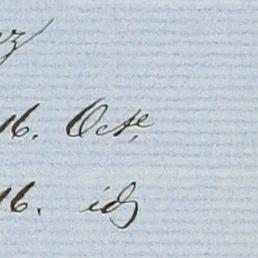 16. Octe
16. id